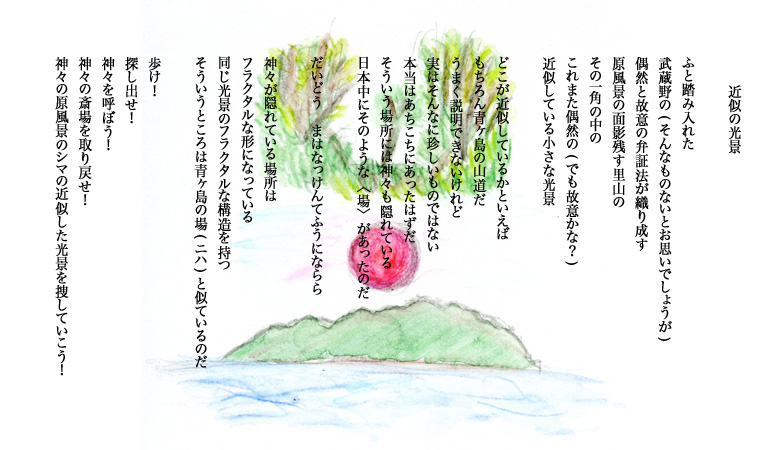 近似の光景
ふと踏み入れた
武蔵野の(そんなものないとお思いでしょうが)
偶然と故意の弁証法が織り成す
原風景の面影残す里山の
その一角の中の
これまた偶然の(でも故意かな？)
近似している小さな光景
どこが近似しているかといえば
もちろん青ヶ島の山道だ
うまく説明できないけれど
実はそんなに珍しいものではない
本当はあちこちにあったはずだ
そういう場所には神々も隠れている
日本中にそのような〈場〉があったのだ
だいどう　まはなっけんてふうにならら
神々が隠れている場所は
フラクタルな形になっている
同じ光景のフラクタルな構造を持つ
そういうところは青ヶ島の場(ニハ)と似ているのだ
歩け！
探し出せ！
神々を呼ぼう！
神々の斎場を取り戻せ！
神々の原風景のシマの近似した光景を捜していこう！